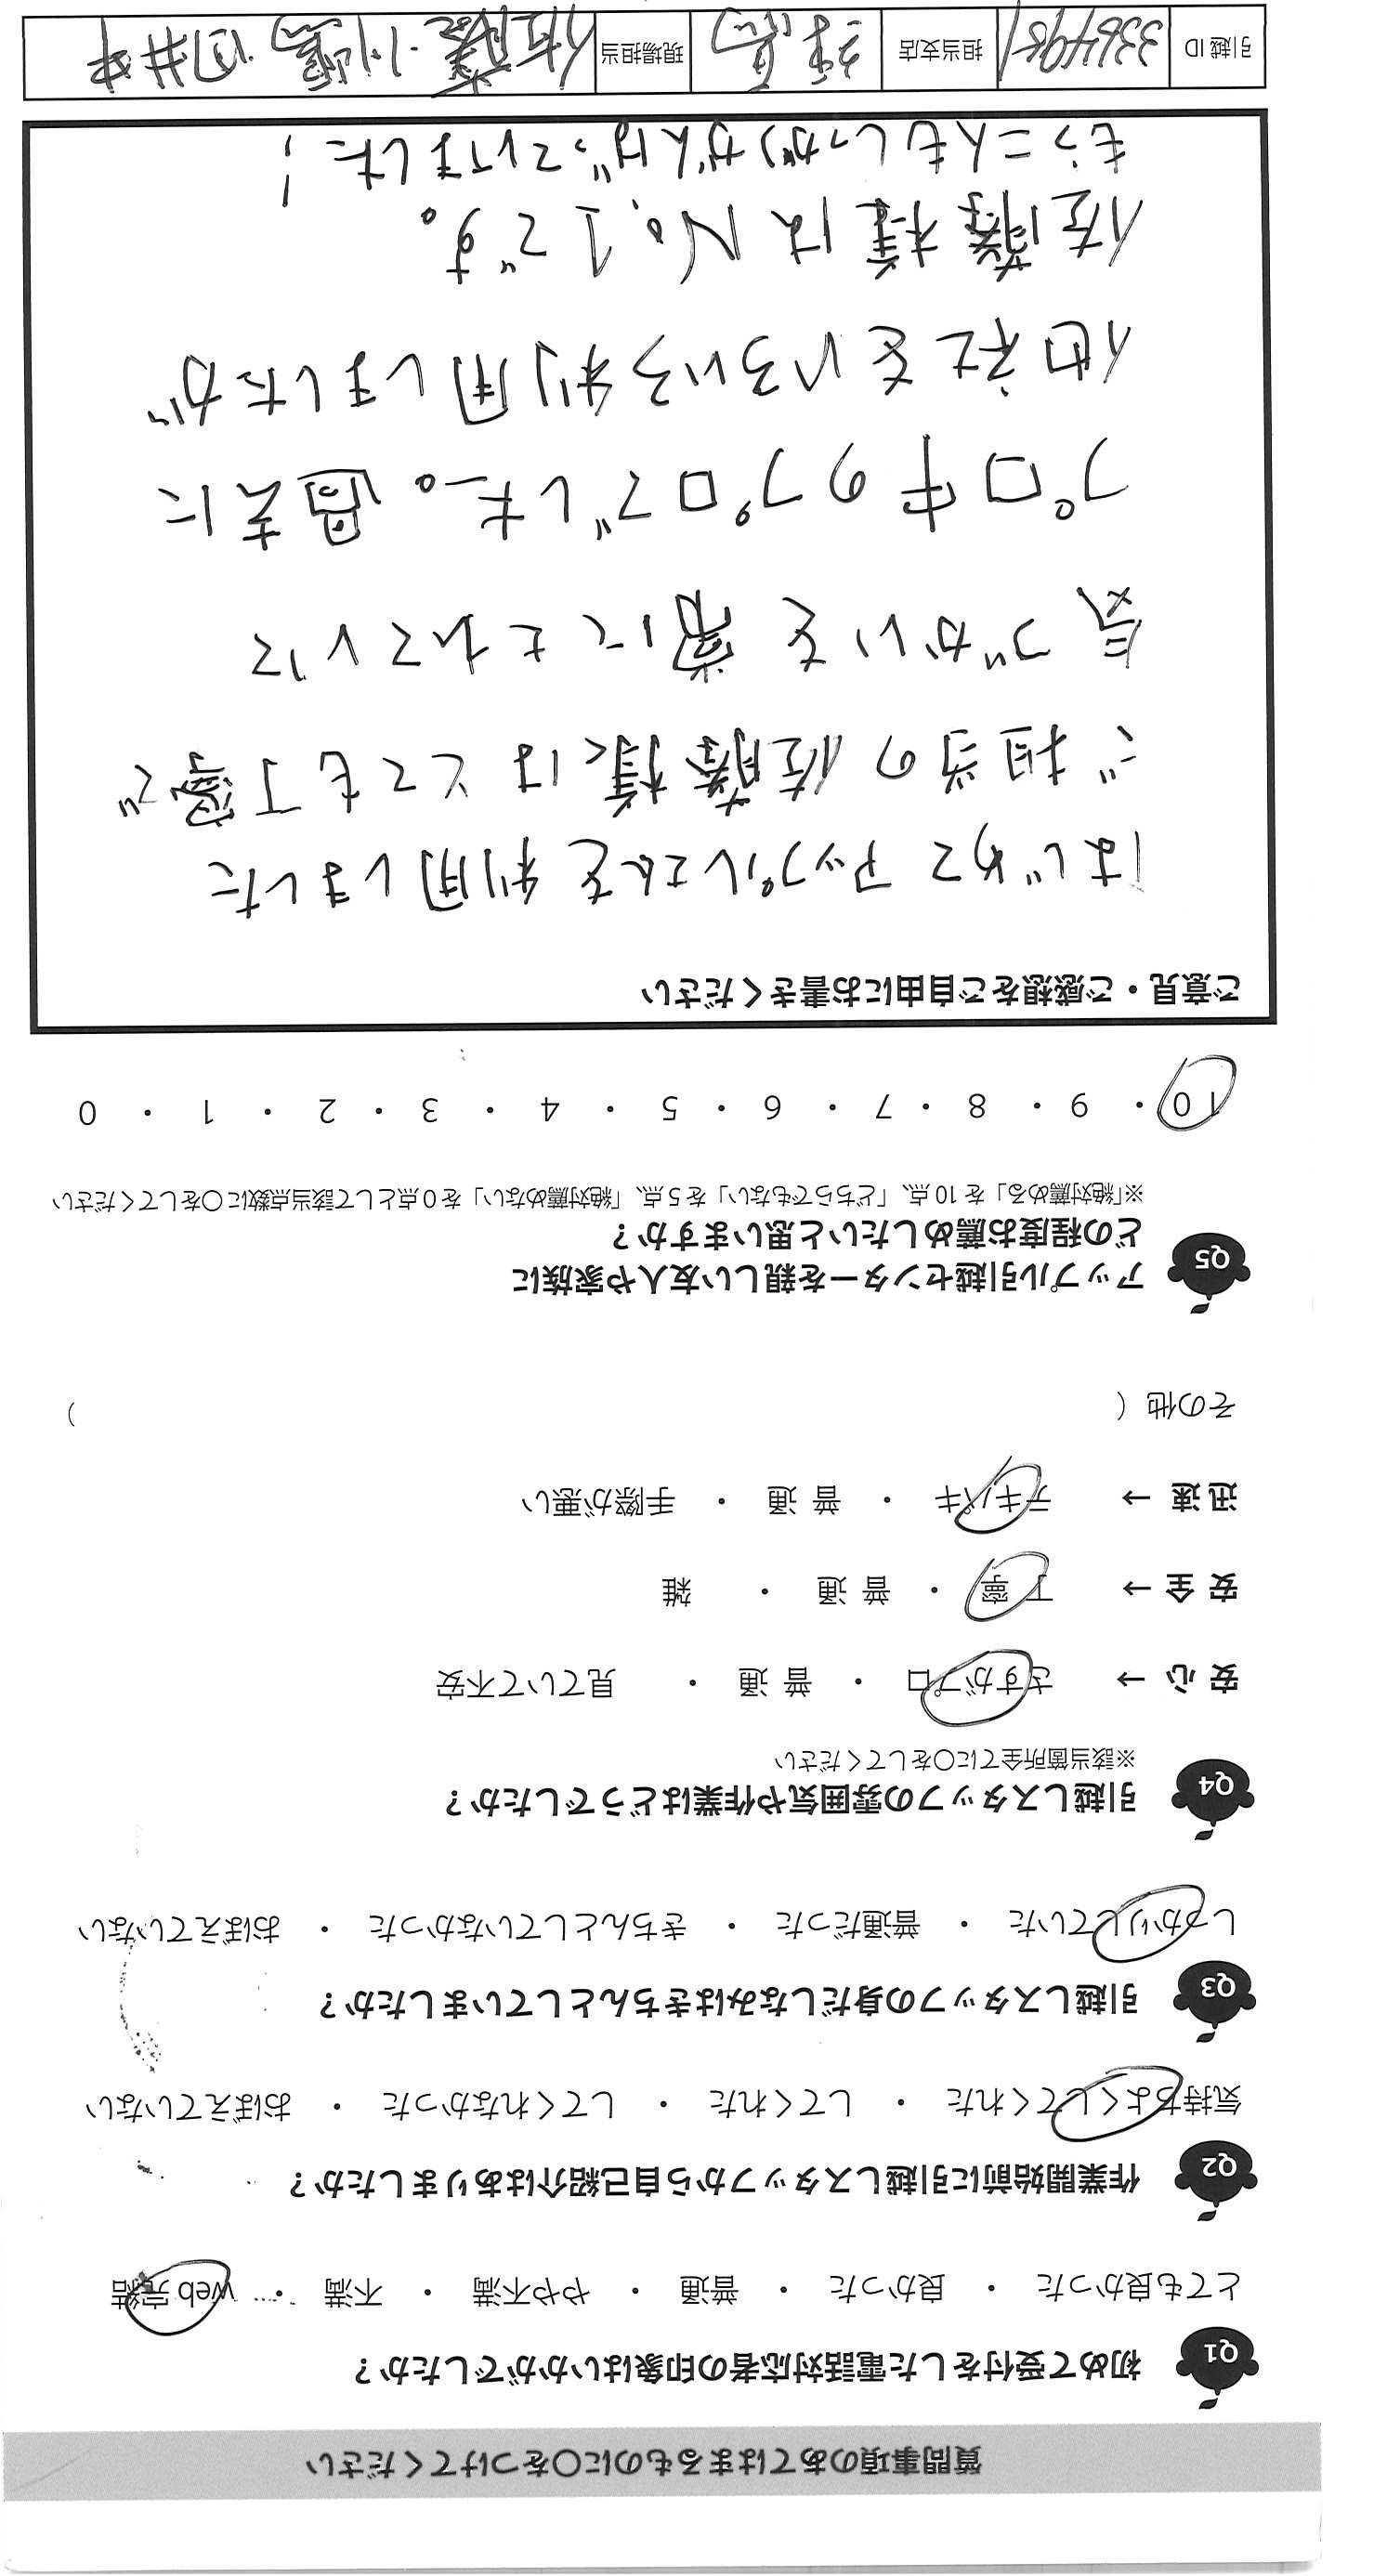 質問事項のあてはまるものに〇をつけてください
Q1 初めて受付をした電話対応者の印象はいかがでしたか？
とても良かった ・ 良かった ・ 普通 ・ やや不満 ・ 不満 ・ web 完結
Q2 作業開始前に引越しスタッフから自己紹介はありましたか？
気持ちよくしてくれた ・ してくれた ・ してくれなかった ・ おぼえていない
Q3 引越しスタッフの身だしなみはきちんとしていましたか？
しっかりしていた ・ 普通だった ・ きちんとしていなかった ・ おぼえていない
Q4 引越しスタッフの雰囲気や作業はどうでしたか？
※該当箇所全てに〇をしてください
安 心 → さすがプロ ・ 普 通 ・ 見ていて不安
安 全 → 丁 寧 ・ 普 通 ・ 雑
迅 速 → テキパキ ・ 普 通 ・ 手際が悪い
その他（ ）
Q5 アップル引越センターを親しい友人や家族に
どの程度お薦めしたいと思いますか？
※「絶対薦める」を 10 点、「どちらでもない」を 5 点、「絶対薦めない」を 0 点として該当点数に〇をしてください
10 ・ 9 ・ 8 ・ 7 ・ 6 ・ 5 ・ 4 ・ 3 ・ 2 ・ 1 ・ 0
ご意見・ご感想をご自由にお書きください
はじめてアップルさんを利用しました
ご担当の佐藤様はとても丁寧で
気づかいを常にされていて
プロ中のプロでした。過去に
他社をいろいろ利用しましたが
佐藤様は No.1 です。
もう二人もしっかりがんばっていました！
引越 ID 担当支店 現場担当 佐藤